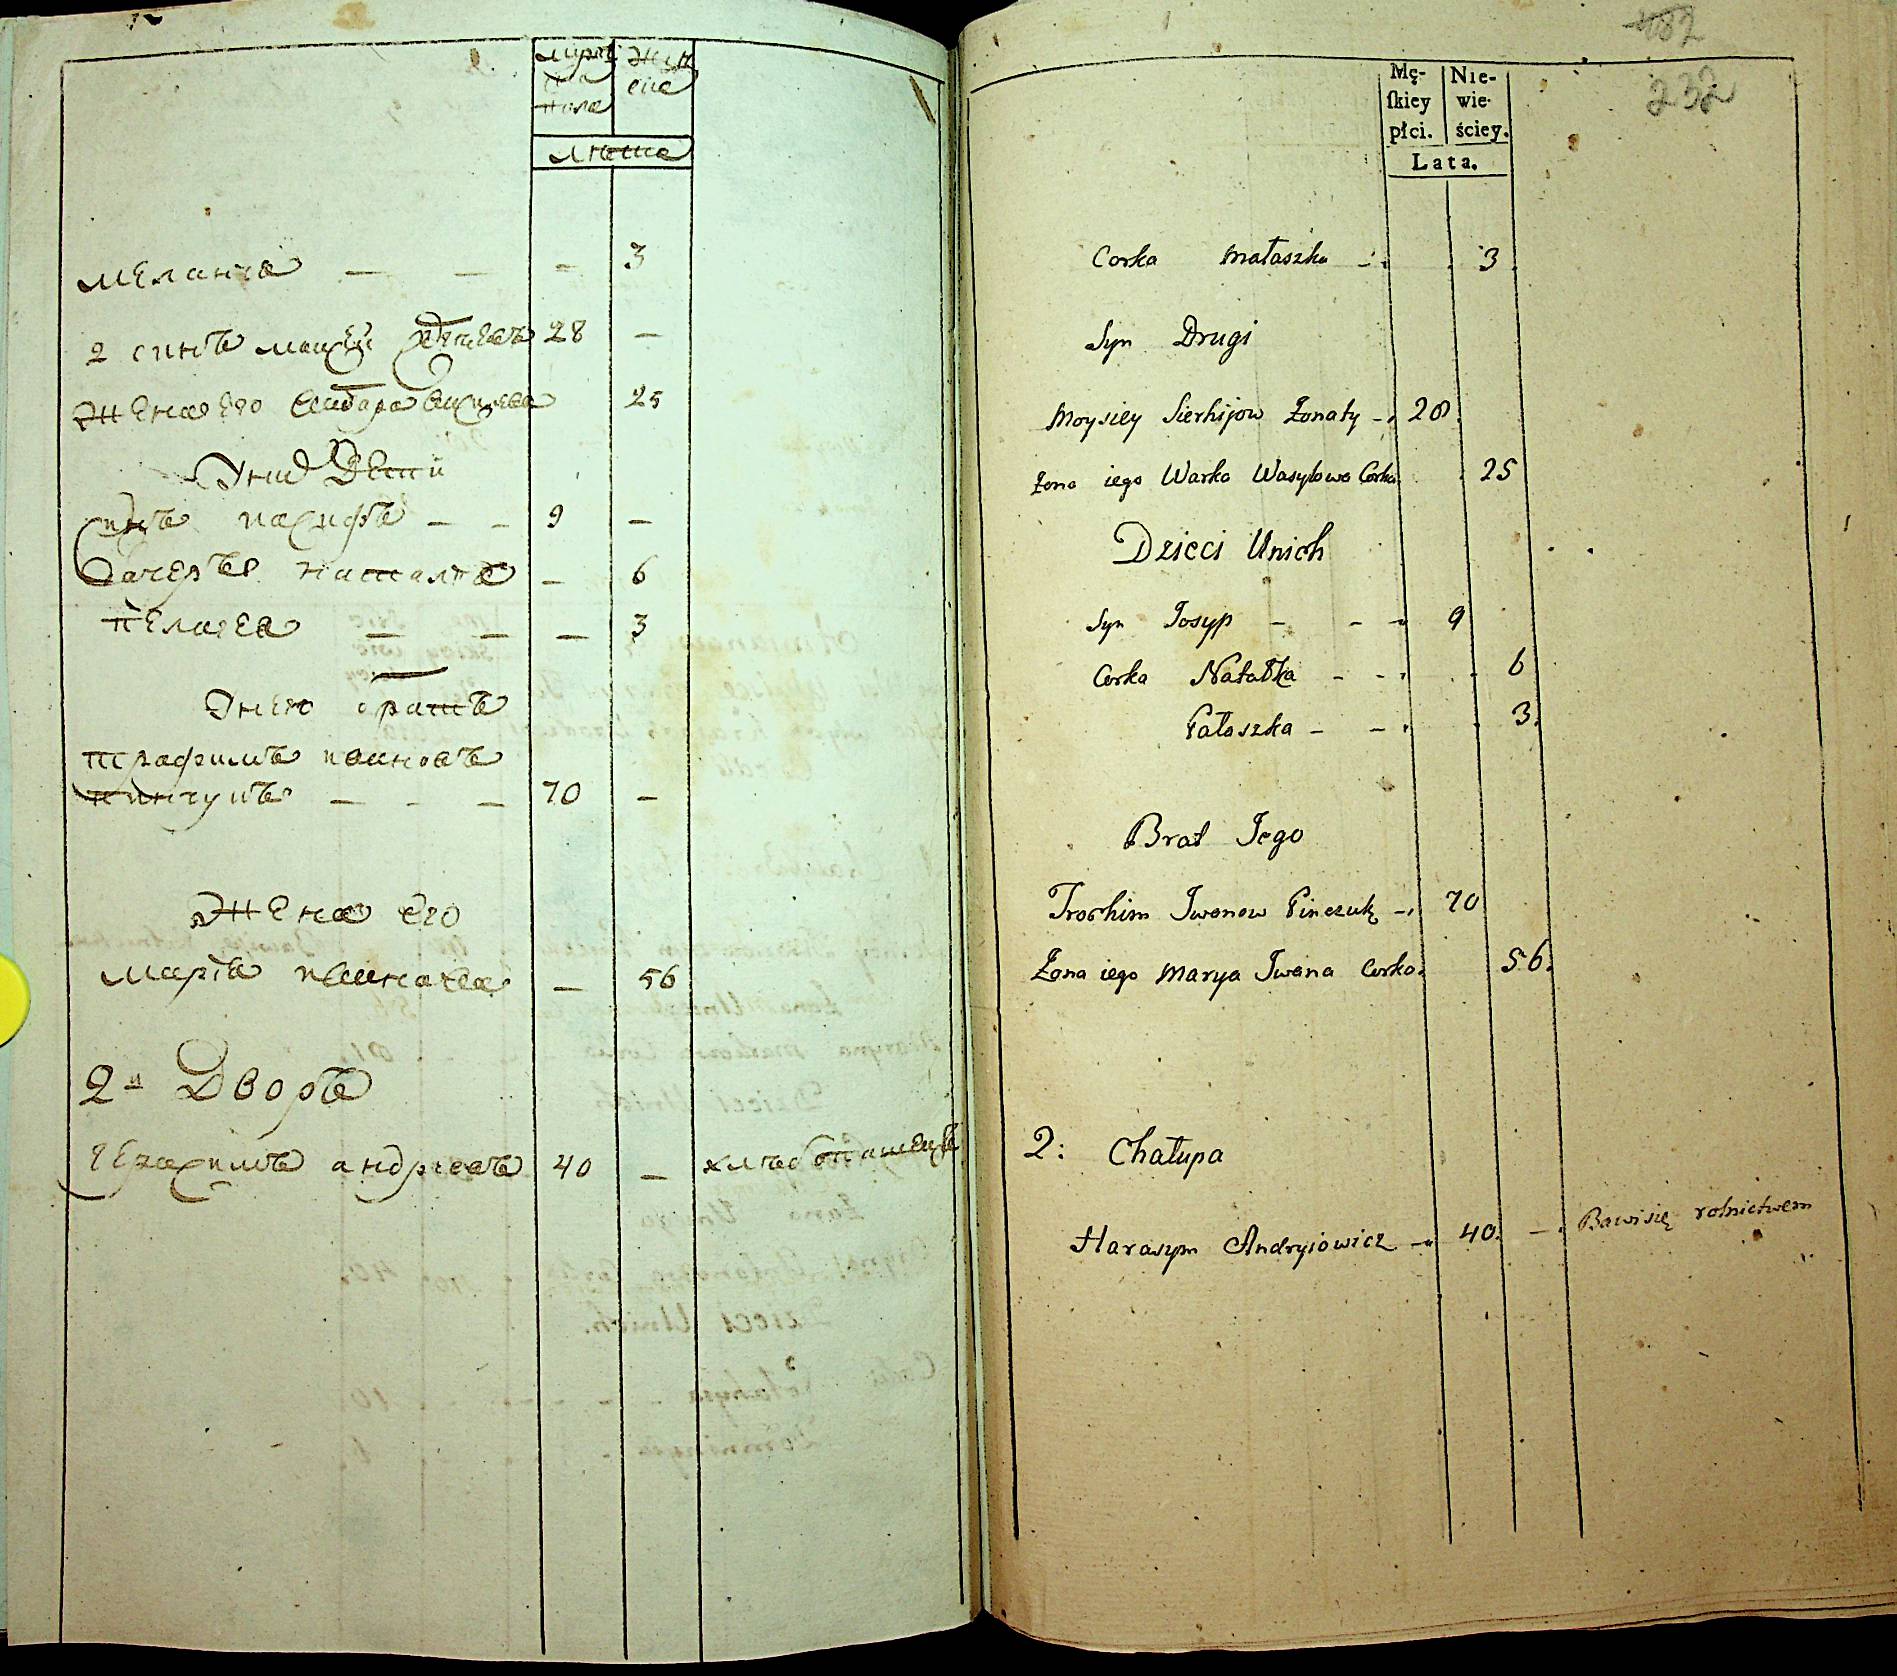 мужска пола
женске
лѣта
Меланія — — — 3
2 синъ Мойсей женатъ 28 —
жена его Варвара Василева 25
У них Дети
синъ иосифъ — — 9 —
дочеръ наталіа — 6
пелагеа — — — 3
У него братъ
трафимъ ивановъ
пинчукъ — — — 70 —
жена его
маріа иванова — 56
2й Дворъ
герасимъ андреевъ 40 — хлебопашецъ
482
232
Mę-
ſkiey
płci.
Nie-
wie-
ściey.
Lata.
Corka Małaszka - . . 3.
Syn Drugi
Moysiey Sierhijow Żonaty -. 28.
Żona iego Warka Wasylowa Corka . 25
Dzieci Unich
Syn Josyp - - - 9
Corka Natałka - - . . 6
Pałaszka - - . . 3.
Brat Jego
Trochim Iwanow Pinczuk -. 70
Żona iego Marya Iwana Corka. 56.
2: Chałupa
Harasym Andryiowicz -. 40. -. Bawi się rolnictwem